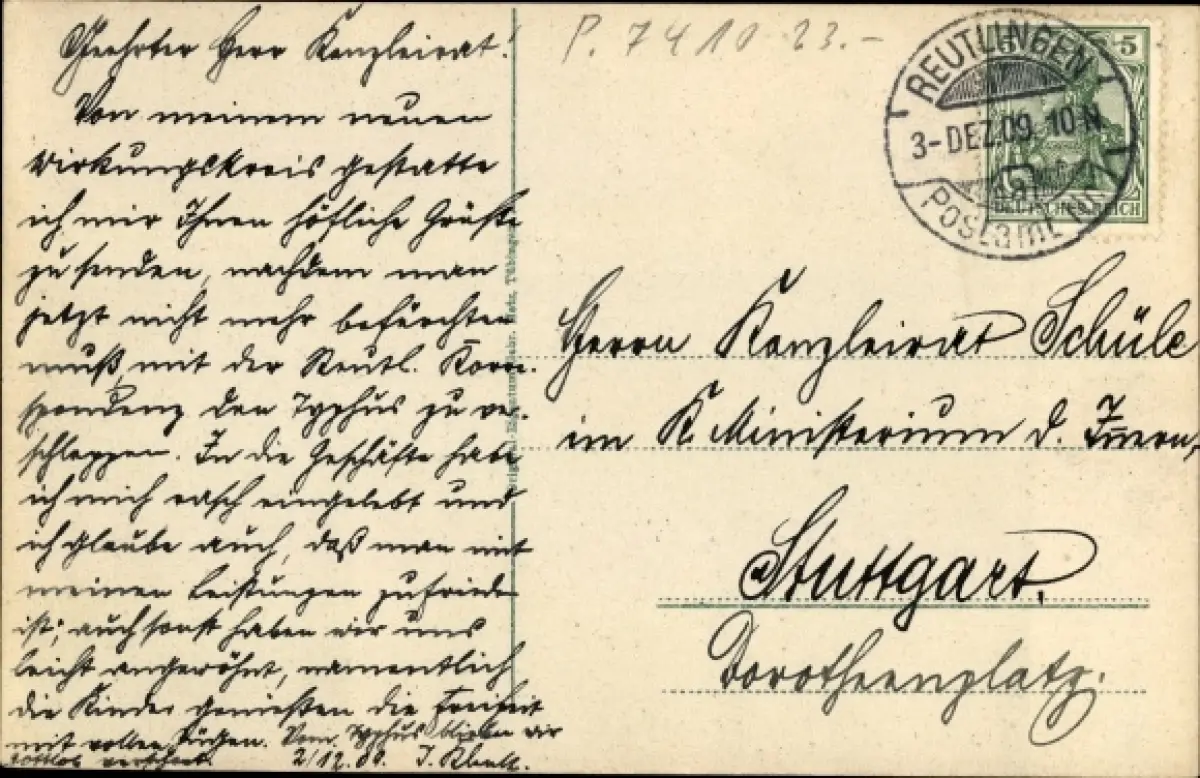 Geehrter Herr Kanzleirat!
Von meinem neuen
Wirkungskreis gestatte
ich mir Ihnen höfliche Grüße
zu senden, nachdem man
jetzt nicht mehr befürchten
muß, mit der Reutl. Korre-
spondenz den Typhus zu ver-
schleppen. In die Geschäfte habe
ich mich rasch eingelebt und
ich glaube auch, daß man mit
meinen Leistungen zufrieden
ist; auch sonst haben wir uns
leicht angewöhnt, namentlich
die Kinder genießen die Freiheit
mit vollen Zügen. Vom Typhus blieben wir
verschont.
2/12.09. J.
P. 7410 23.-
REUTLINGEN
3-DEZ.09. 10-N.
Postamt
5
DEUTSCHES REICH
Herrn Kanzleirat Schüle
im K. Ministerium d. Innern,
Stuttgart.
Dorotheenplatz.